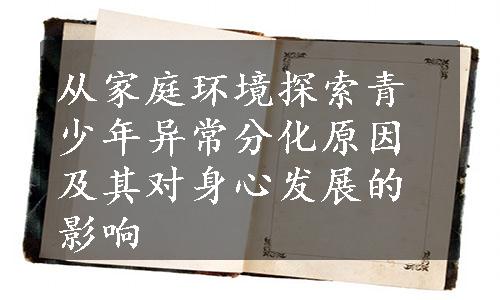 从家庭环境探索青
少年异常分化原因
及其对身心发展的
影响